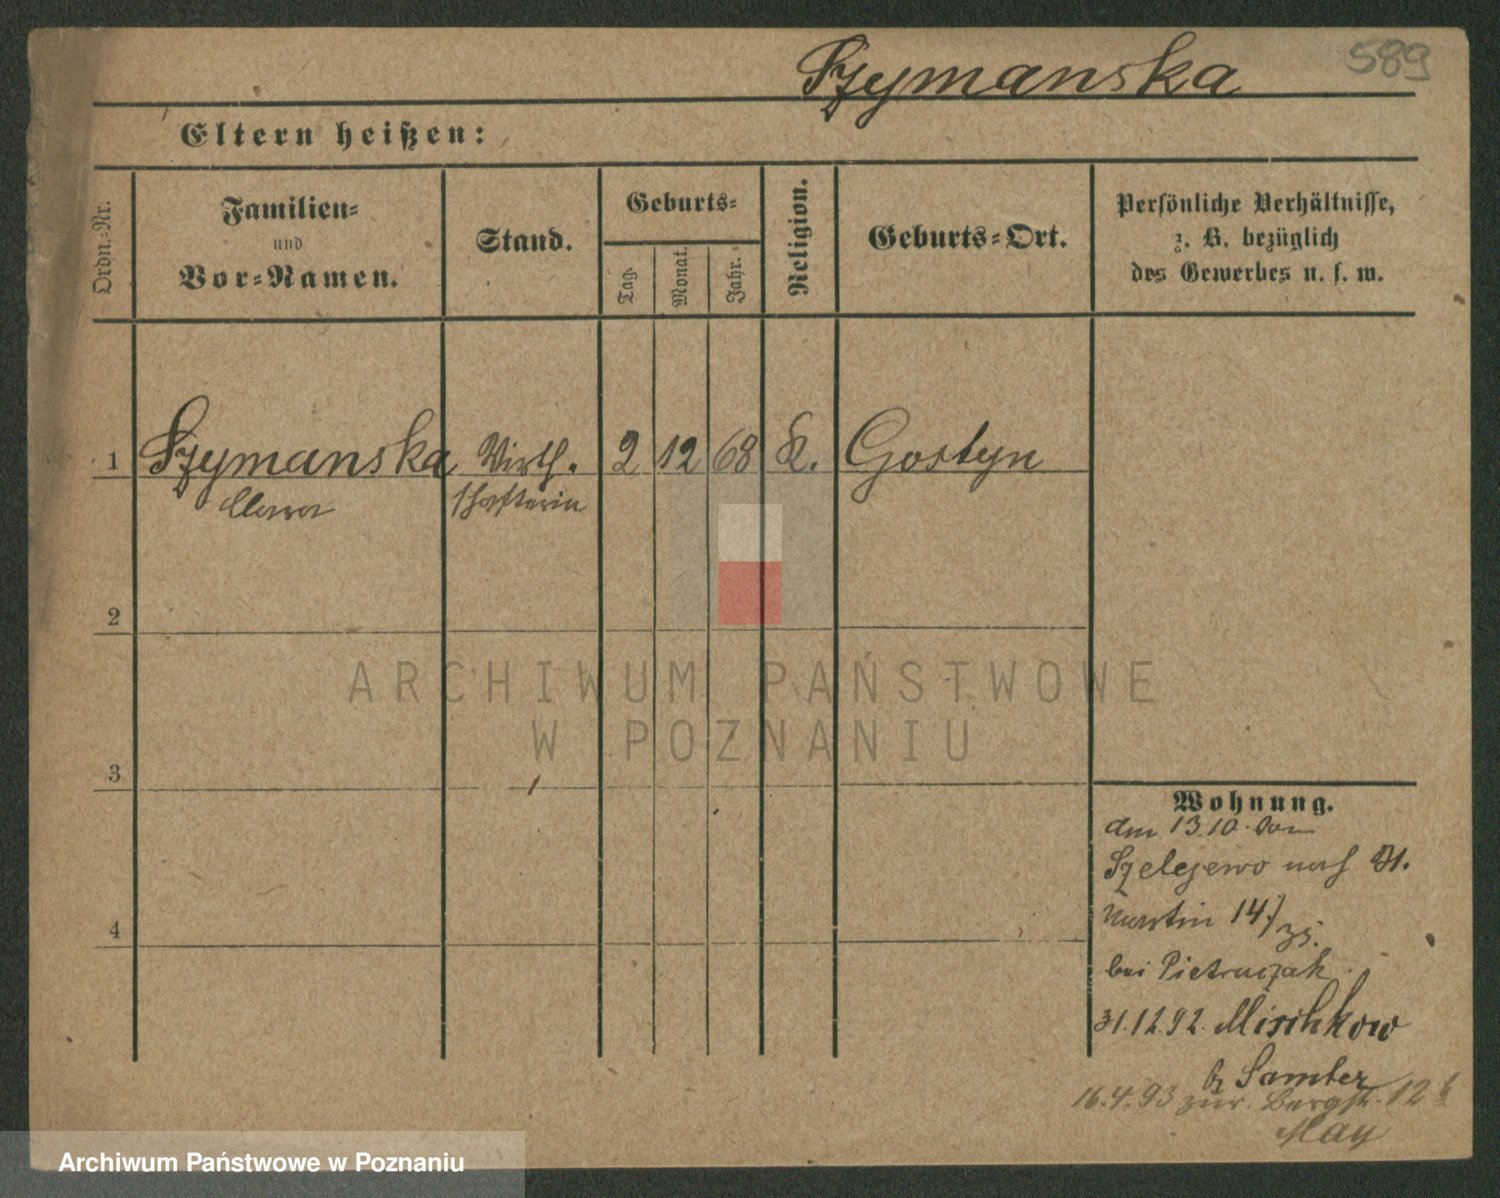 Szymanska 589
Eltern heißen:
Ordn.-Nr.
Familien-
und
Vor-Namen.
Stand.
Geburts-
Tag.
Monat.
Jahr.
Religion.
Geburts-Ort.
Persönliche Verhältnisse,
z. B. bezüglich
des Gewerbes u. s. w.
1 Szymanska Wirth. 2 12 68 K. Gostyn
schafterin
2
ARCHIWUM PAŃSTWOWE
W POZNANIU
3
4
Wohnung.
am 13.10. von
Szelejewo nach St.
Martin 14
bei Pietruczak
31.12.92. Mischkow
b Samter
16.4.93 zur. Bergstr. 12
May
Archiwum Państwowe w Poznaniu